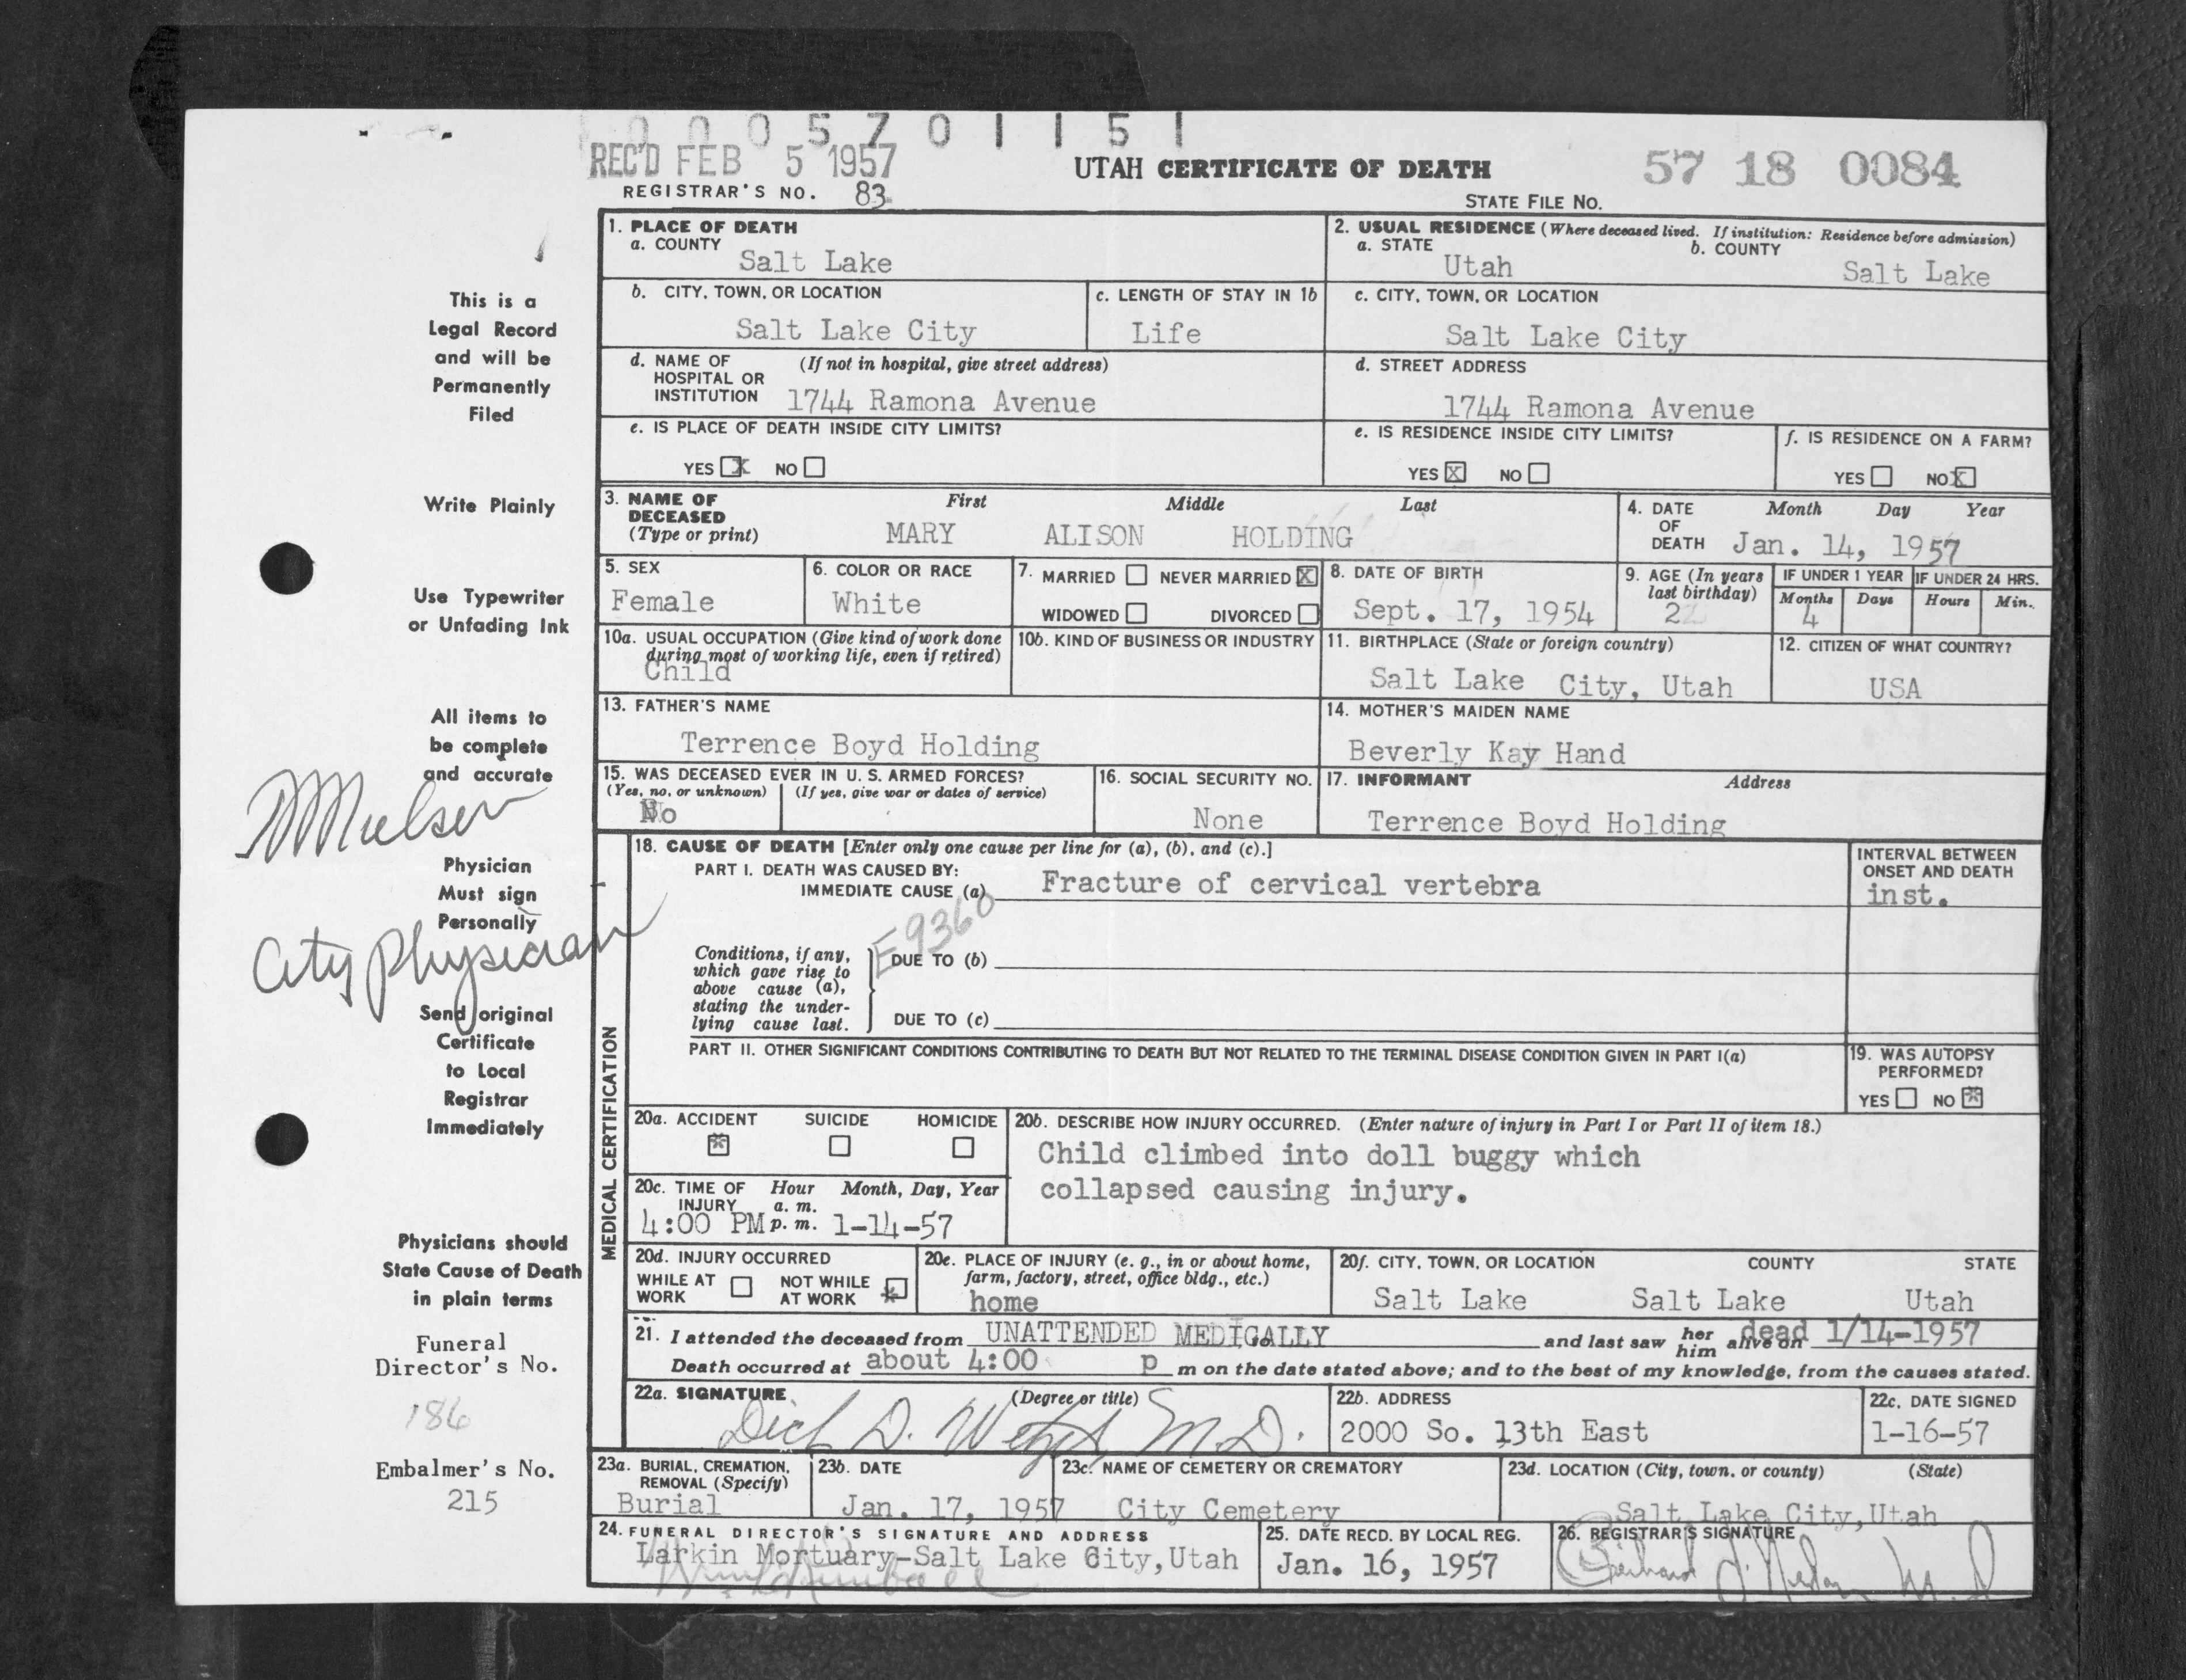 0 0 0 5 7 0 1 1 5 1
REC'D FEB 5 1957
UTAH CERTIFICATE OF DEATH
57 18 0084
REGISTRAR'S NO. 83
STATE FILE No.
1. PLACE OF DEATH
a. COUNTY
Salt Lake
2. USUAL RESIDENCE (Where deceased lived. If institution: Residence before admission)
a. STATE b. COUNTY
Utah Salt Lake
b. CITY, TOWN, OR LOCATION
Salt Lake City
c. LENGTH OF STAY IN 1b
Life
c. CITY, TOWN, OR LOCATION
Salt Lake City
d. NAME OF (If not in hospital, give street address)
HOSPITAL OR
INSTITUTION 1744 Ramona Avenue
d. STREET ADDRESS
1744 Ramona Avenue
e. IS PLACE OF DEATH INSIDE CITY LIMITS?
YES X NO
e. IS RESIDENCE INSIDE CITY LIMITS?
YES X NO
f. IS RESIDENCE ON A FARM?
YES NO X
3. NAME OF First Middle Last
DECEASED
(Type or print) MARY ALISON HOLDING
4. DATE Month Day Year
OF
DEATH Jan. 14, 1957
5. SEX
Female
6. COLOR OR RACE
White
7. MARRIED NEVER MARRIED X
WIDOWED DIVORCED
8. DATE OF BIRTH
Sept. 17, 1954
9. AGE (In years
last birthday)
2
IF UNDER 1 YEAR IF UNDER 24 HRS.
Months Days Hours Min.
4
10a. USUAL OCCUPATION (Give kind of work done
during most of working life, even if retired)
Child
10b. KIND OF BUSINESS OR INDUSTRY
11. BIRTHPLACE (State or foreign country)
Salt Lake City, Utah
12. CITIZEN OF WHAT COUNTRY?
USA
13. FATHER'S NAME
Terrence Boyd Holding
14. MOTHER'S MAIDEN NAME
Beverly Kay Hand
15. WAS DECEASED EVER IN U. S. ARMED FORCES?
(Yes, no, or unknown) (If yes, give war or dates of service)
No
16. SOCIAL SECURITY NO.
None
17. INFORMANT Address
Terrence Boyd Holding
MEDICAL CERTIFICATION
18. CAUSE OF DEATH [Enter only one cause per line for (a), (b), and (c).]
PART I. DEATH WAS CAUSED BY:
IMMEDIATE CAUSE (a) Fracture of cervical vertebra
INTERVAL BETWEEN
ONSET AND DEATH
inst.
E9360
Conditions, if any,
which gave rise to
above cause (a),
stating the under-
lying cause last.
DUE TO (b)
DUE TO (c)
PART II. OTHER SIGNIFICANT CONDITIONS CONTRIBUTING TO DEATH BUT NOT RELATED TO THE TERMINAL DISEASE CONDITION GIVEN IN PART I(a)
19. WAS AUTOPSY
PERFORMED?
YES NO X
20a. ACCIDENT SUICIDE HOMICIDE
X
20b. DESCRIBE HOW INJURY OCCURRED. (Enter nature of injury in Part I or Part II of item 18.)
Child climbed into doll buggy which
collapsed causing injury.
20c. TIME OF Hour Month, Day, Year
INJURY a. m.
4:00 PM p. m. 1-14-57
20d. INJURY OCCURRED
WHILE AT NOT WHILE
WORK AT WORK
20e. PLACE OF INJURY (e. g., in or about home,
farm, factory, street, office bldg., etc.)
home
20f. CITY, TOWN, OR LOCATION COUNTY STATE
Salt Lake Salt Lake Utah
21. I attended the deceased from UNATTENDED MEDICALLY and last saw her him alive on dead 1/14-1957
Death occurred at about 4:00 p m on the date stated above; and to the best of my knowledge, from the causes stated.
22a. SIGNATURE (Degree or title)
Dick D. M.D.
22b. ADDRESS
2000 So. 13th East
22c. DATE SIGNED
1-16-57
23a. BURIAL, CREMATION,
REMOVAL (Specify)
Burial
23b. DATE
Jan. 17, 1957
23c. NAME OF CEMETERY OR CREMATORY
City Cemetery
23d. LOCATION (City, town, or county) (State)
Salt Lake City, Utah
24. FUNERAL DIRECTOR'S SIGNATURE AND ADDRESS
Larkin Mortuary-Salt Lake City, Utah
25. DATE RECD. BY LOCAL REG.
Jan. 16, 1957
26. REGISTRAR'S SIGNATURE
This is a
Legal Record
and will be
Permanently
Filed
Write Plainly
Use Typewriter
or Unfading Ink
All items to
be complete
and accurate
Physician
Must sign
Personally
City Physician
Send original
Certificate
to Local
Registrar
Immediately
Physicians should
State Cause of Death
in plain terms
Funeral
Director's No.
186
Embalmer's No.
215